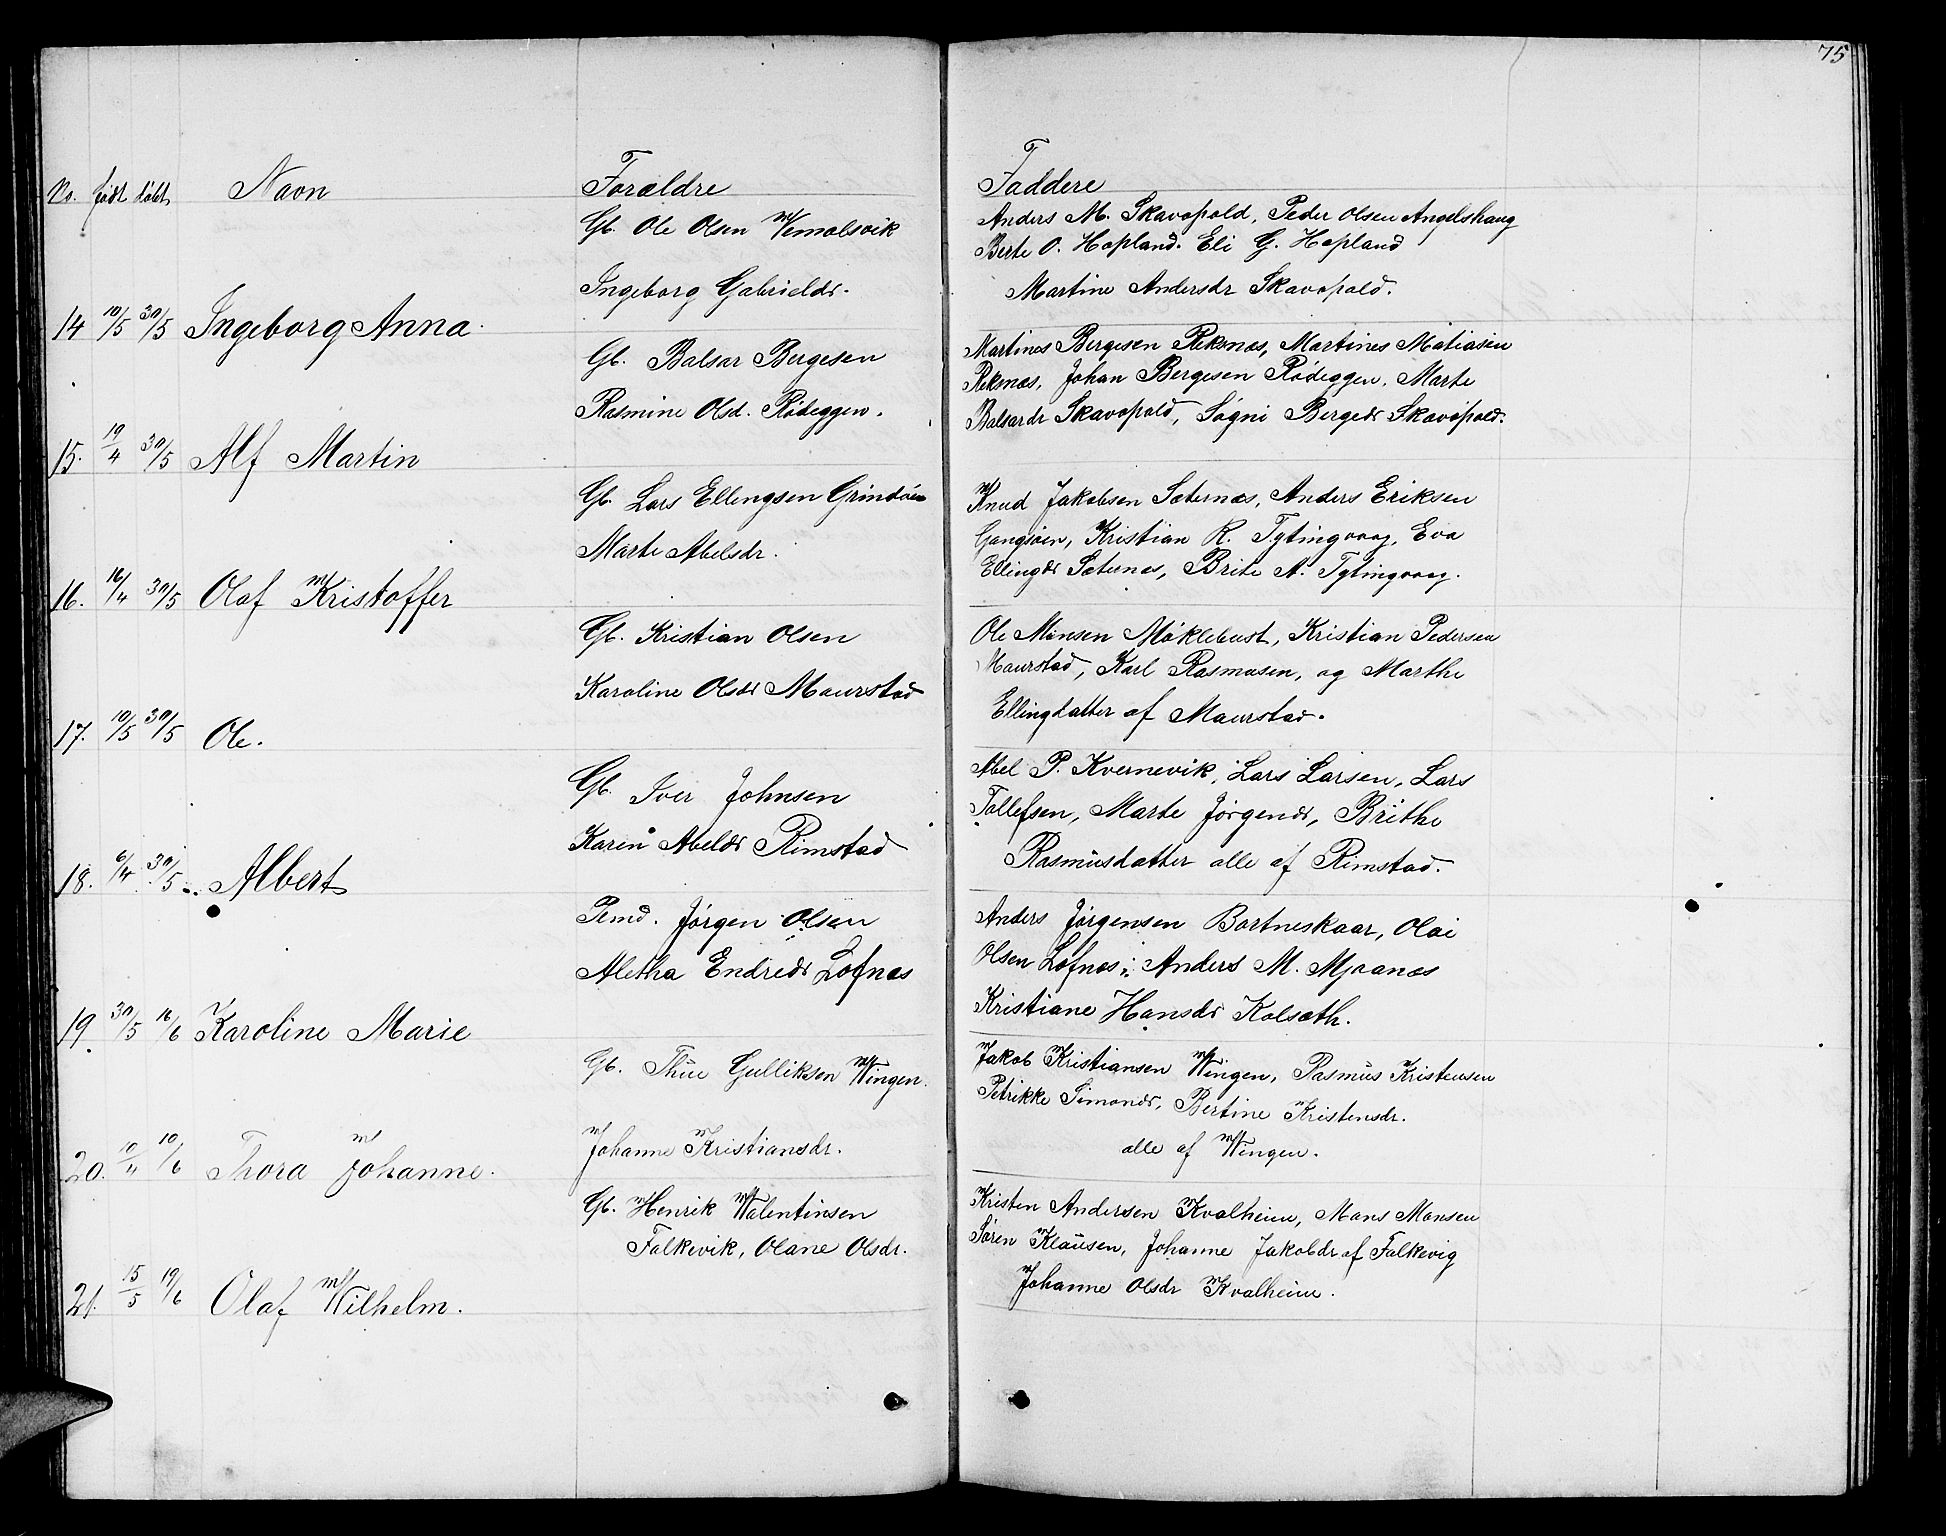 75
No. født døbt Navn Forældre Faddere
Gb. Ole Olsen Vemolsvik
Ingeborg Gabrieldr.
14 10/5 30/5 Ingeborg Anna.
Anders M. Skavøpold, Peder Olsen Angelshaug
Berte O. Hopland. Eli G. Hopland
Martine Andersdr Skavøpold.
Gb. Balsar Bergesen
Rasmine Olsd. Rødeggen.
15. 19/4 30/5 Alf Martin
Martines Bergesen Reksnæs, Martines Matiasen
Reksnæs, Johan Bergesen Rødeggen, Marte
Balsardr Skavøpold, Søgni Bergedr Skavøpold.
Gb. Lars Ellingsen Grindøen
Marte Abelsdr.
16. 16/4 30/5 Olaf Kristoffer
Knud Jakobsen Sæternæs, Anders Eriksen
Gangsøen, Kristian R. Tytingvaag, Eva
Ellingdr Sæternæs, Brite A. Tytingvaag.
Gb. Kristian Olsen
Karoline Olsdr Maurstad
17. 10/5 30/5 Ole.
Ole Monsen Møklebust, Kristian Pedersen
Maurstad, Karl Rasmusen, og Marthe
Ellingdatter af Maurstad.
Gb. Iver Johnsen
Karen Abeldr Rimstad
18. 6/4 30/5 Albert
Abel P. Kvernevik, Lars Larsen, Lars
Tollefsen, Marte Jørgendr, Brithe
Rasmusdatter alle af Rimstad.
Pemd. Jørgen Olsen
Aletha Endredr Lofnæs
19. 30/5 16/6 Karoline Marie
Anders Jørgensen Bortneskaar, Olai
Olsen Lofnæs, Anders M. Mjaanæs
Kristiane Hansdr Kolsæth.
Gb. Thue Gulliksen Wingen.
Johanne Kristiansdr.
20. 10/4 10/6 Thora Johanne.
Jakob Kristiansen Wingen, Rasmus Kristensen
Petrikke Simondr, Bertine Kristensdr.
alle af Wingen.
Gb. Henrik Walentinsen
Falkevik, Olane Olsdr.
21. 15/5 19/6 Olaf Wilhelm.
Kristen Andersen Kvalheim, Mons Monsen
Søren Klausen, Johanne Jakobdr. af Falkevig
Johanne Olsdr Kvalheim.